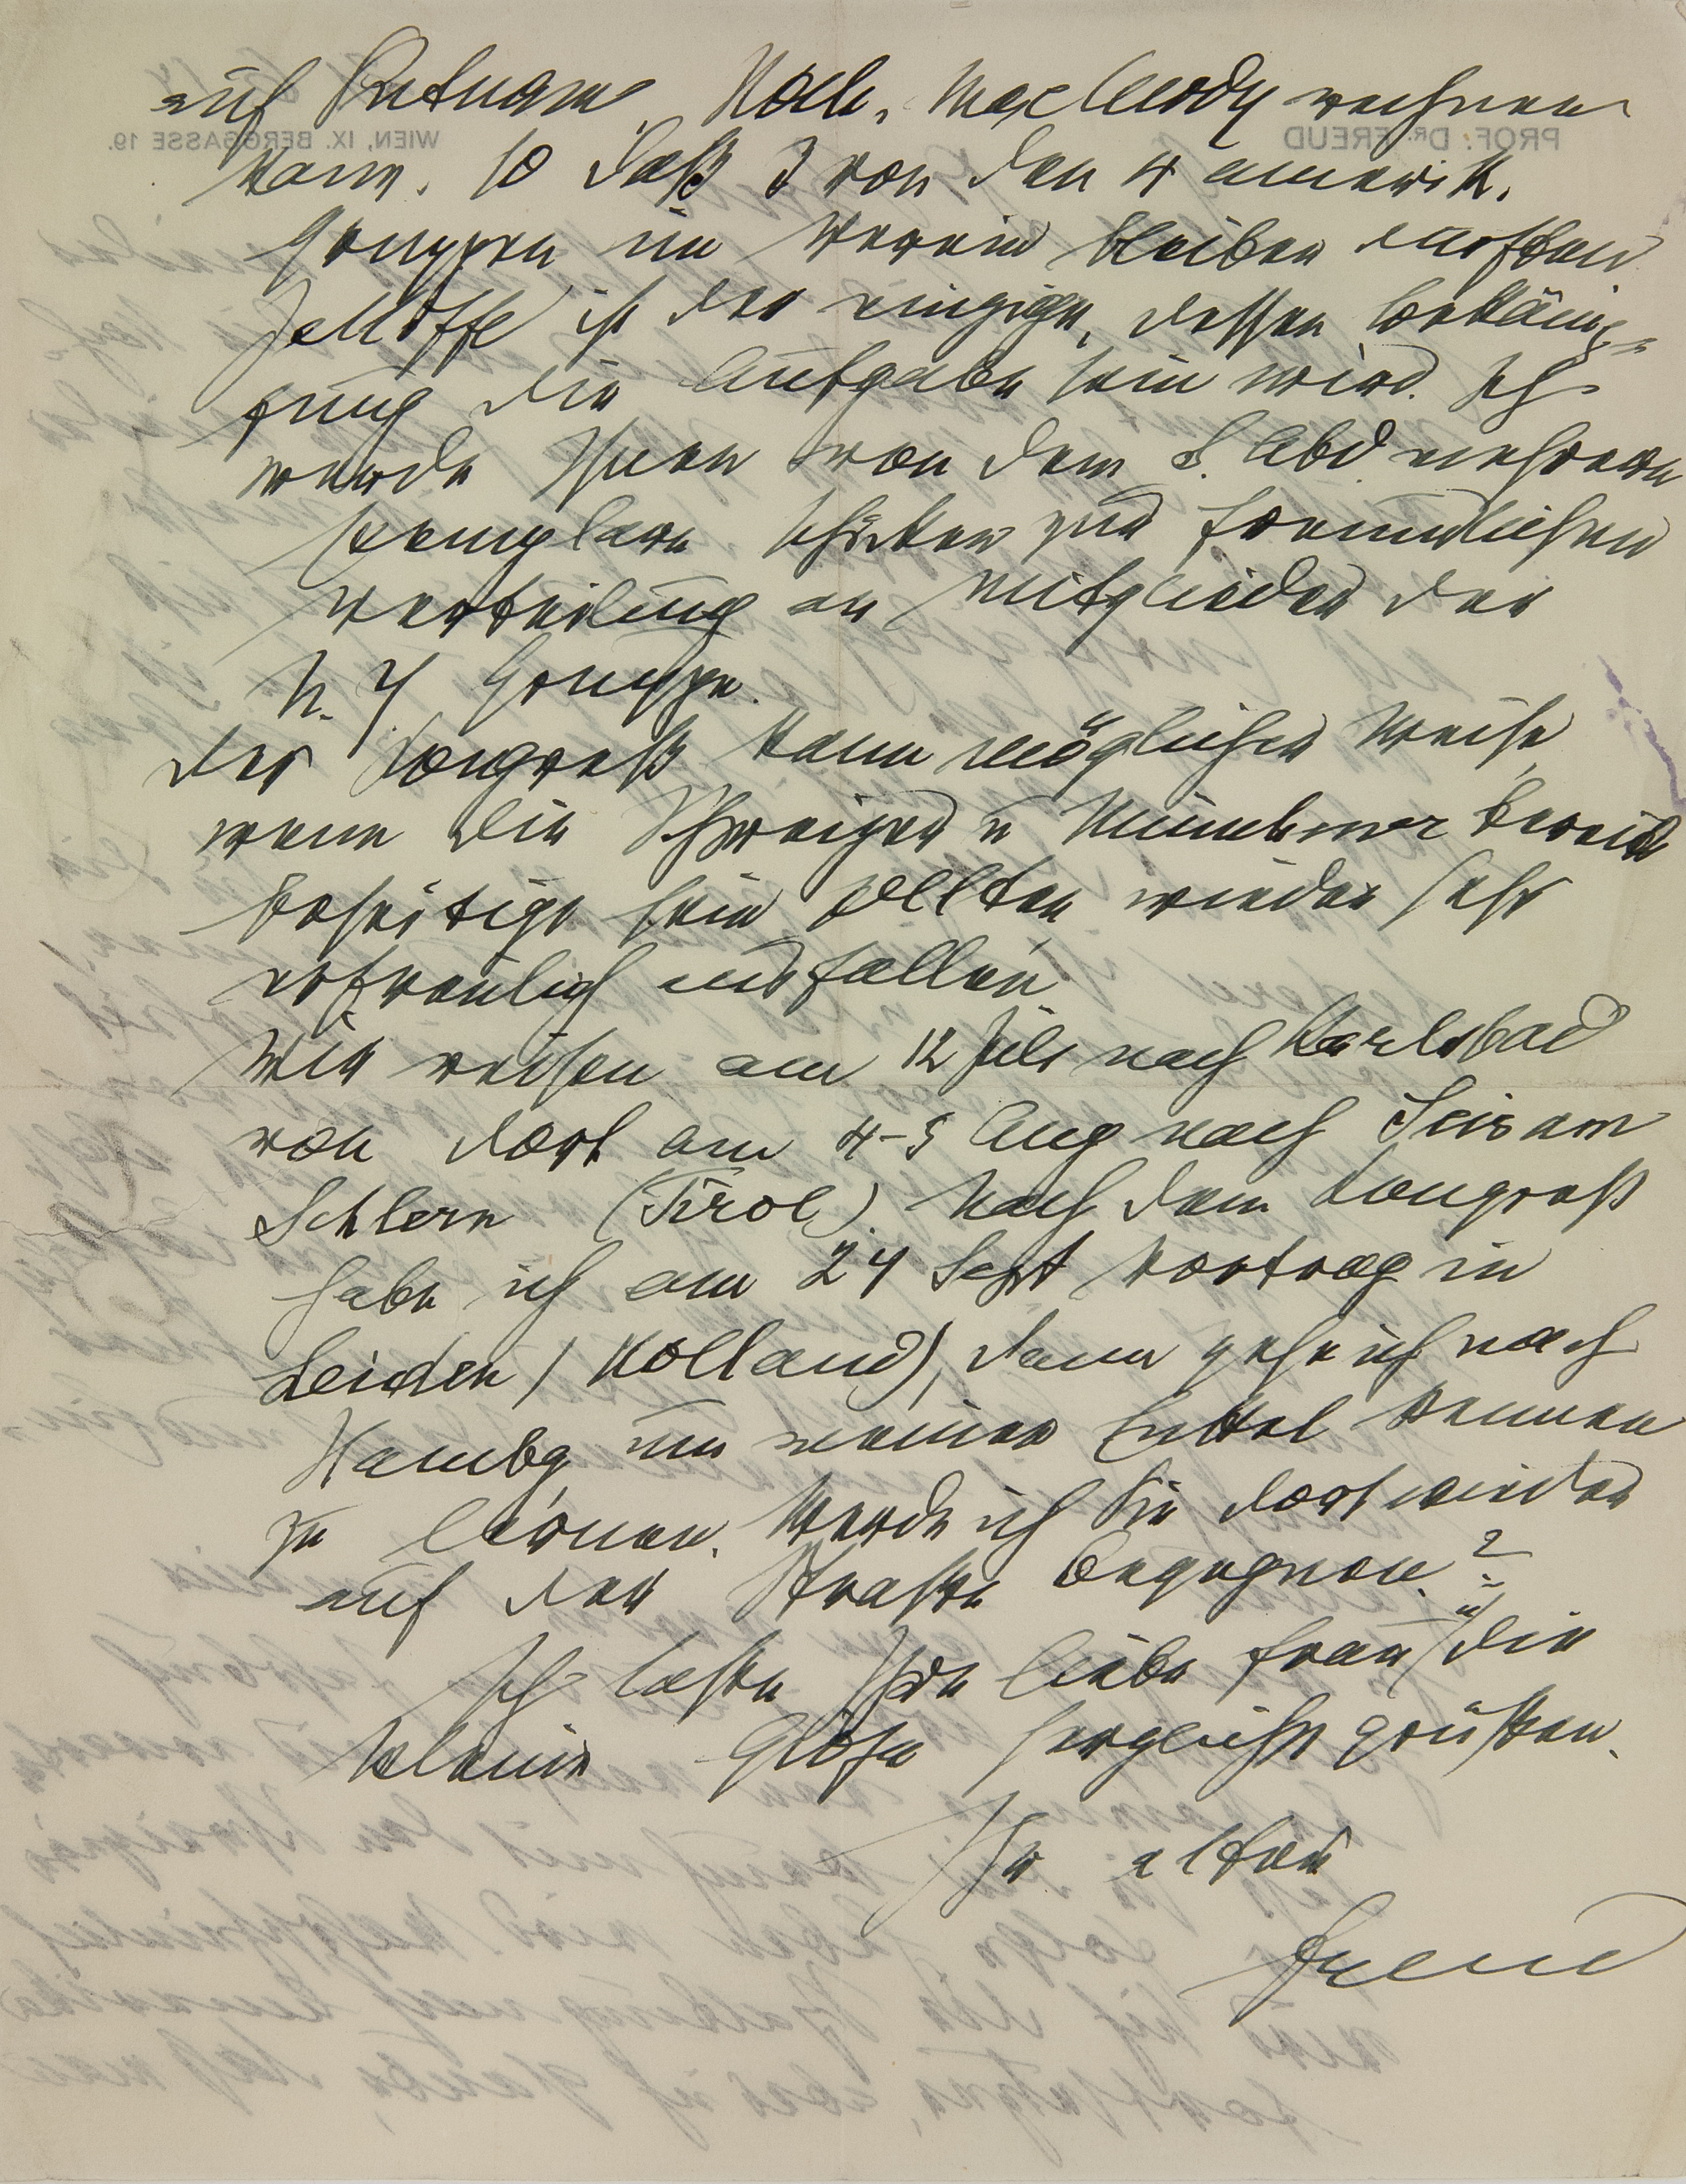 auf Putnam, Hoch, MacCurdy rechnen
kann, so daß 3 von den 4 amerik.
Gruppen im Verein bleiben dürften
Jelliffe ist der einzige, dessen Bekämp=
fung die Aufgabe sein wird. Ich
werde Ihnen von dem S. Abd. mehrere
Exemplare schicken zur freundlichen
Verteilung an Mitglieder der
N. Y Gruppe.
Der Kongreß kann möglicher Weise,
wenn die Schweizer u Münchner bereits
beseitigt sein sollten wieder sehr
erfreulich ausfallen.
Wir reisen am 12 Juli nach Karlsbad
von dort am 4-5 Aug nach Seis am
Schlern (Tirol). Nach dem Kongreß
habe ich am 24 Sept Vortrag in
Leiden (Holland), dann gehe ich nach
Hambg um meinen Enkel kennen
zu lernen. Werde ich Sie dort wieder
auf der Strasse begegnen?
Ich lasse Ihre liebe Frau u die
kleine herzlichst grüßen.
Ihr alter
Freud
PROF. DR. FREUD
WIEN, IX. BERGGASSE 19.